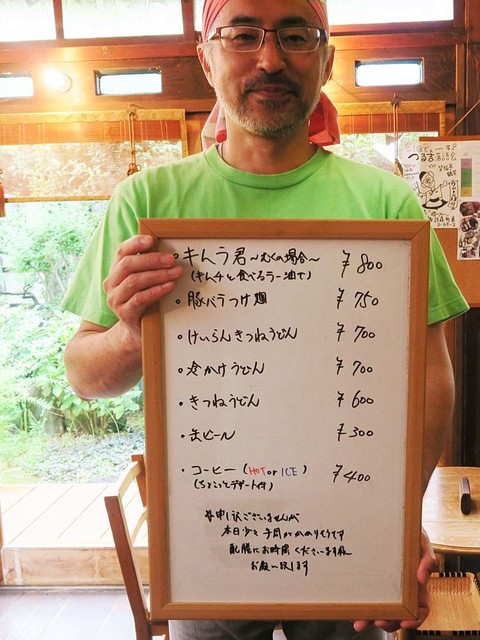 ・キムラ君〜むくの場合〜 ¥800
(キムチと食べるラー油で)
・豚バラつけ麺 ¥750
・けいらんきつねうどん ¥700
・冷かけうどん ¥700
・きつねうどん ¥600
・缶ビール ¥300
・コーヒー(HOT or ICE) ¥400
(ちょこっとデザート付)
申し訳ございませんが
本日少々手間がかかりそうです
配膳にお時間くださいませ
お願い致します
つる吉落語会